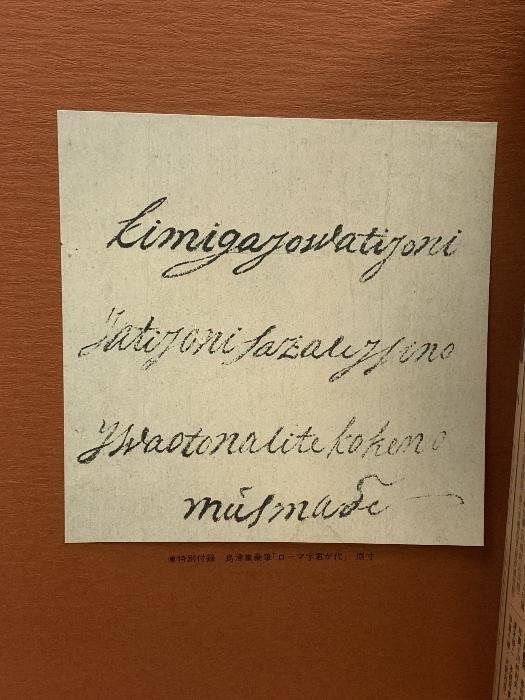 kimigayowatiyoni
Yatiyoni sazaleysino
Ywaotonalite kokeno
músmade
●特別付録 島津重豪筆「ローマ字君が代」 原寸